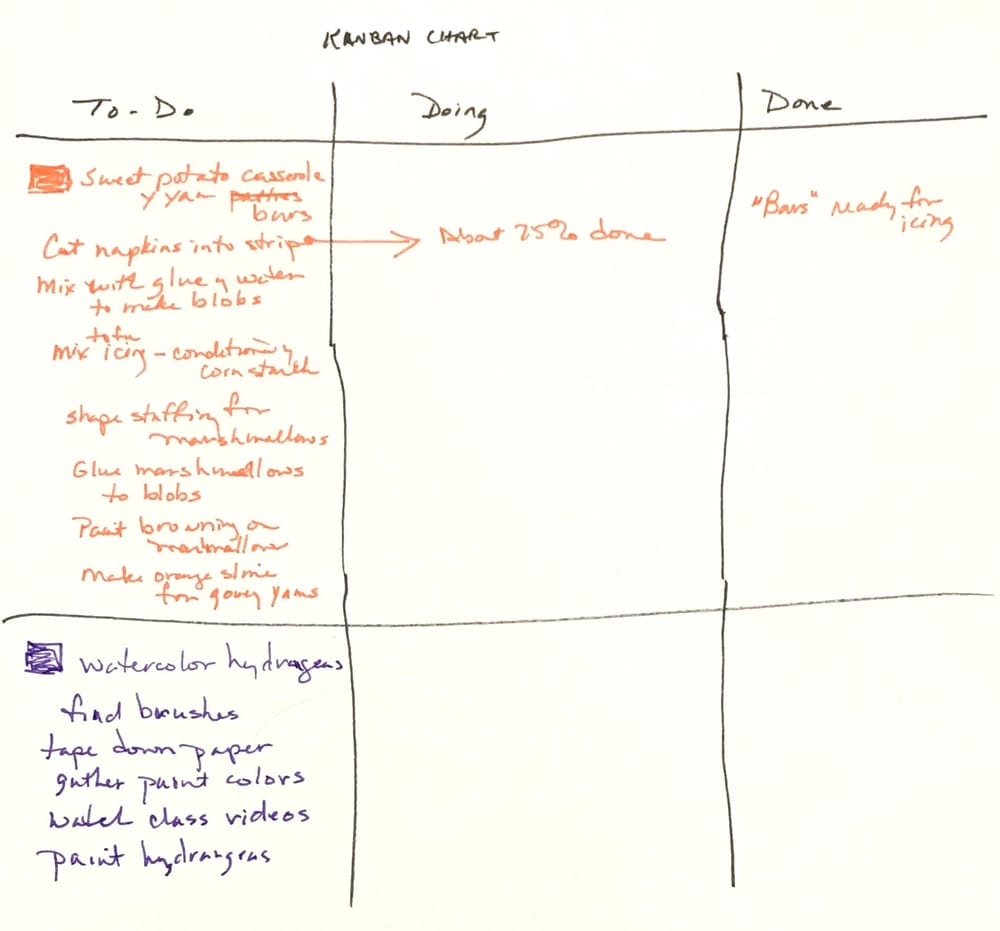 KANBAN CHART
To-Do
Doing
Done
Sweet potato casserole
y yam patties
bars
Cut napkins into strips
About 75% done
"Bars" ready for
icing
Mix with glue y water
to make blobs
tofu
Mix icing - conditioner y
corn starch
shape stuffing for
marshmallows
Glue marshmallows
to blobs
Paint browning on
marshmallows
Make orange slime
for gooey yams
watercolor hydrageas
find brushes
tape down paper
gather paint colors
watch class videos
paint hydrangeas